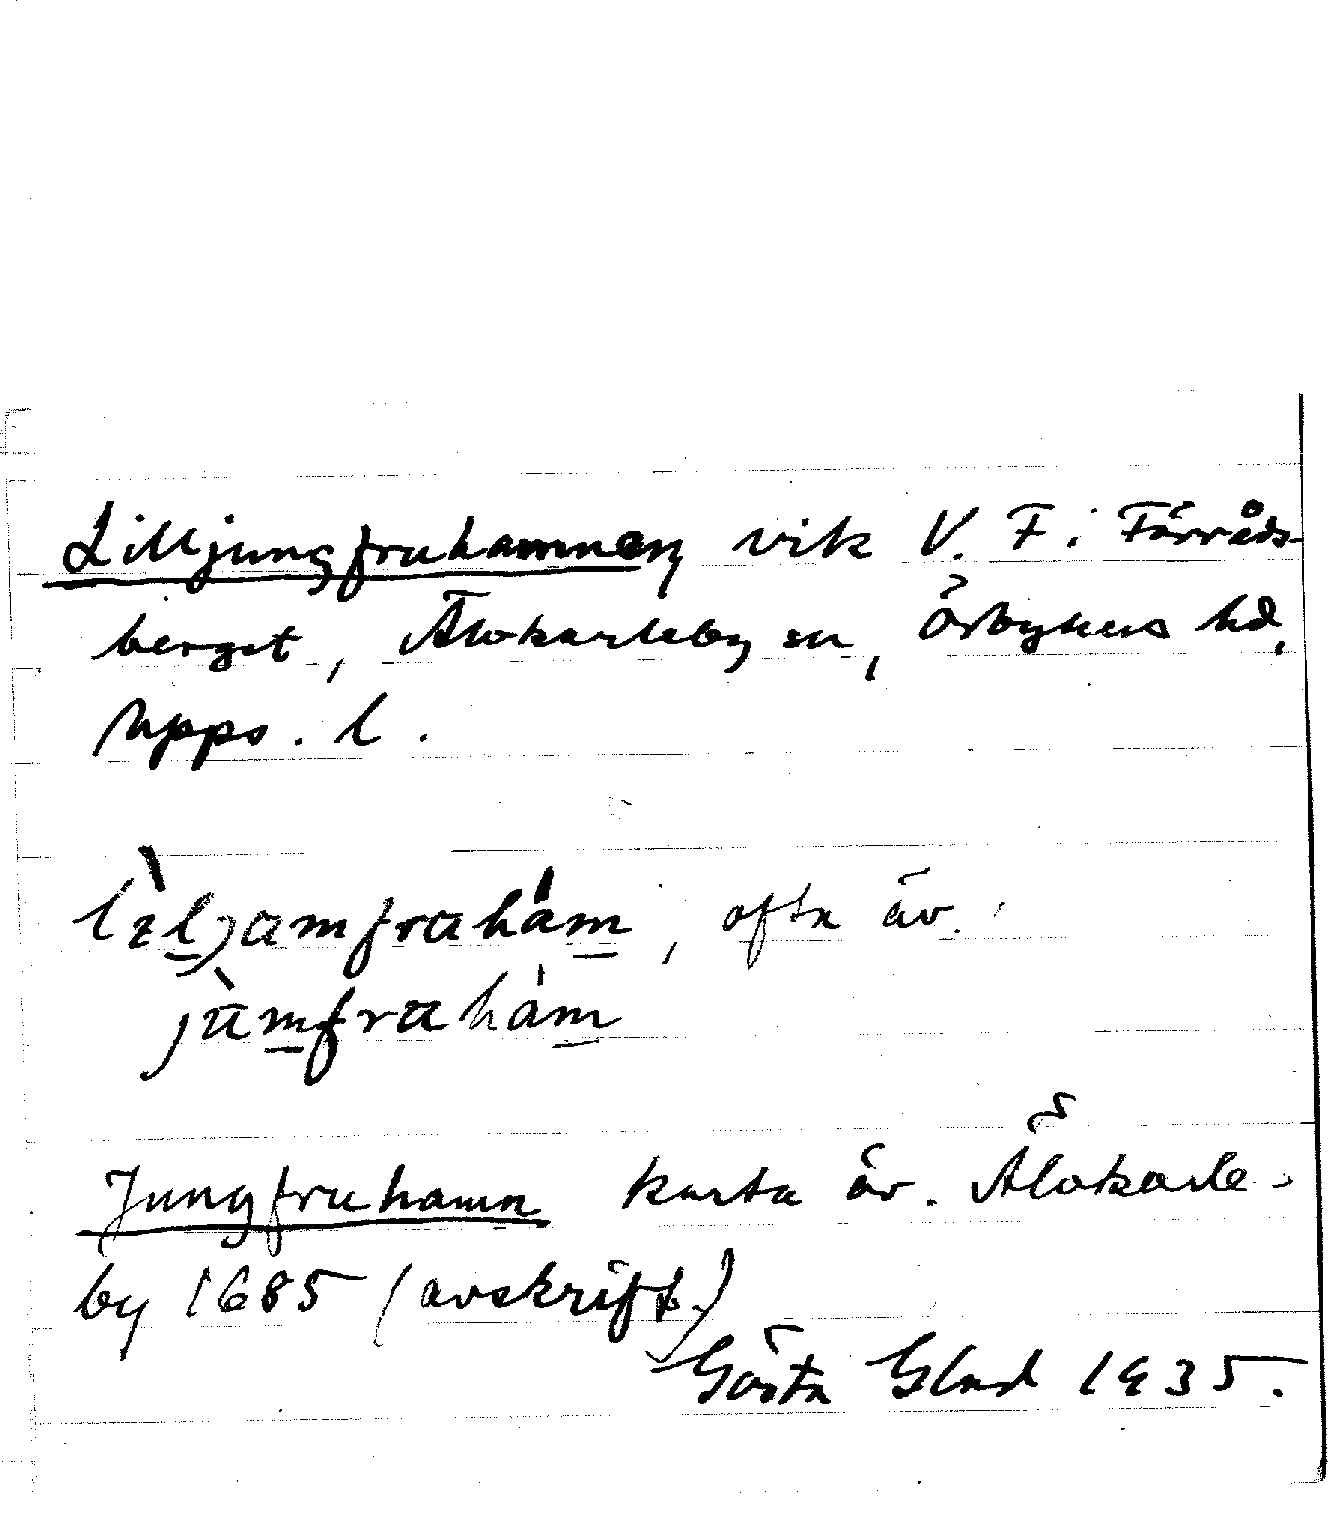 Lilljungfruhamnen vik V. F. i Förråds-
berget, Älvkarleby sn, Örbyhus hd,
Upps. l.
lìljamfrahám, ofta äv.
jùmfrahám
Jungfruhamn karta öv. Älvkarle-
by 1685 (avskrift)
Gösta Glad 1935.